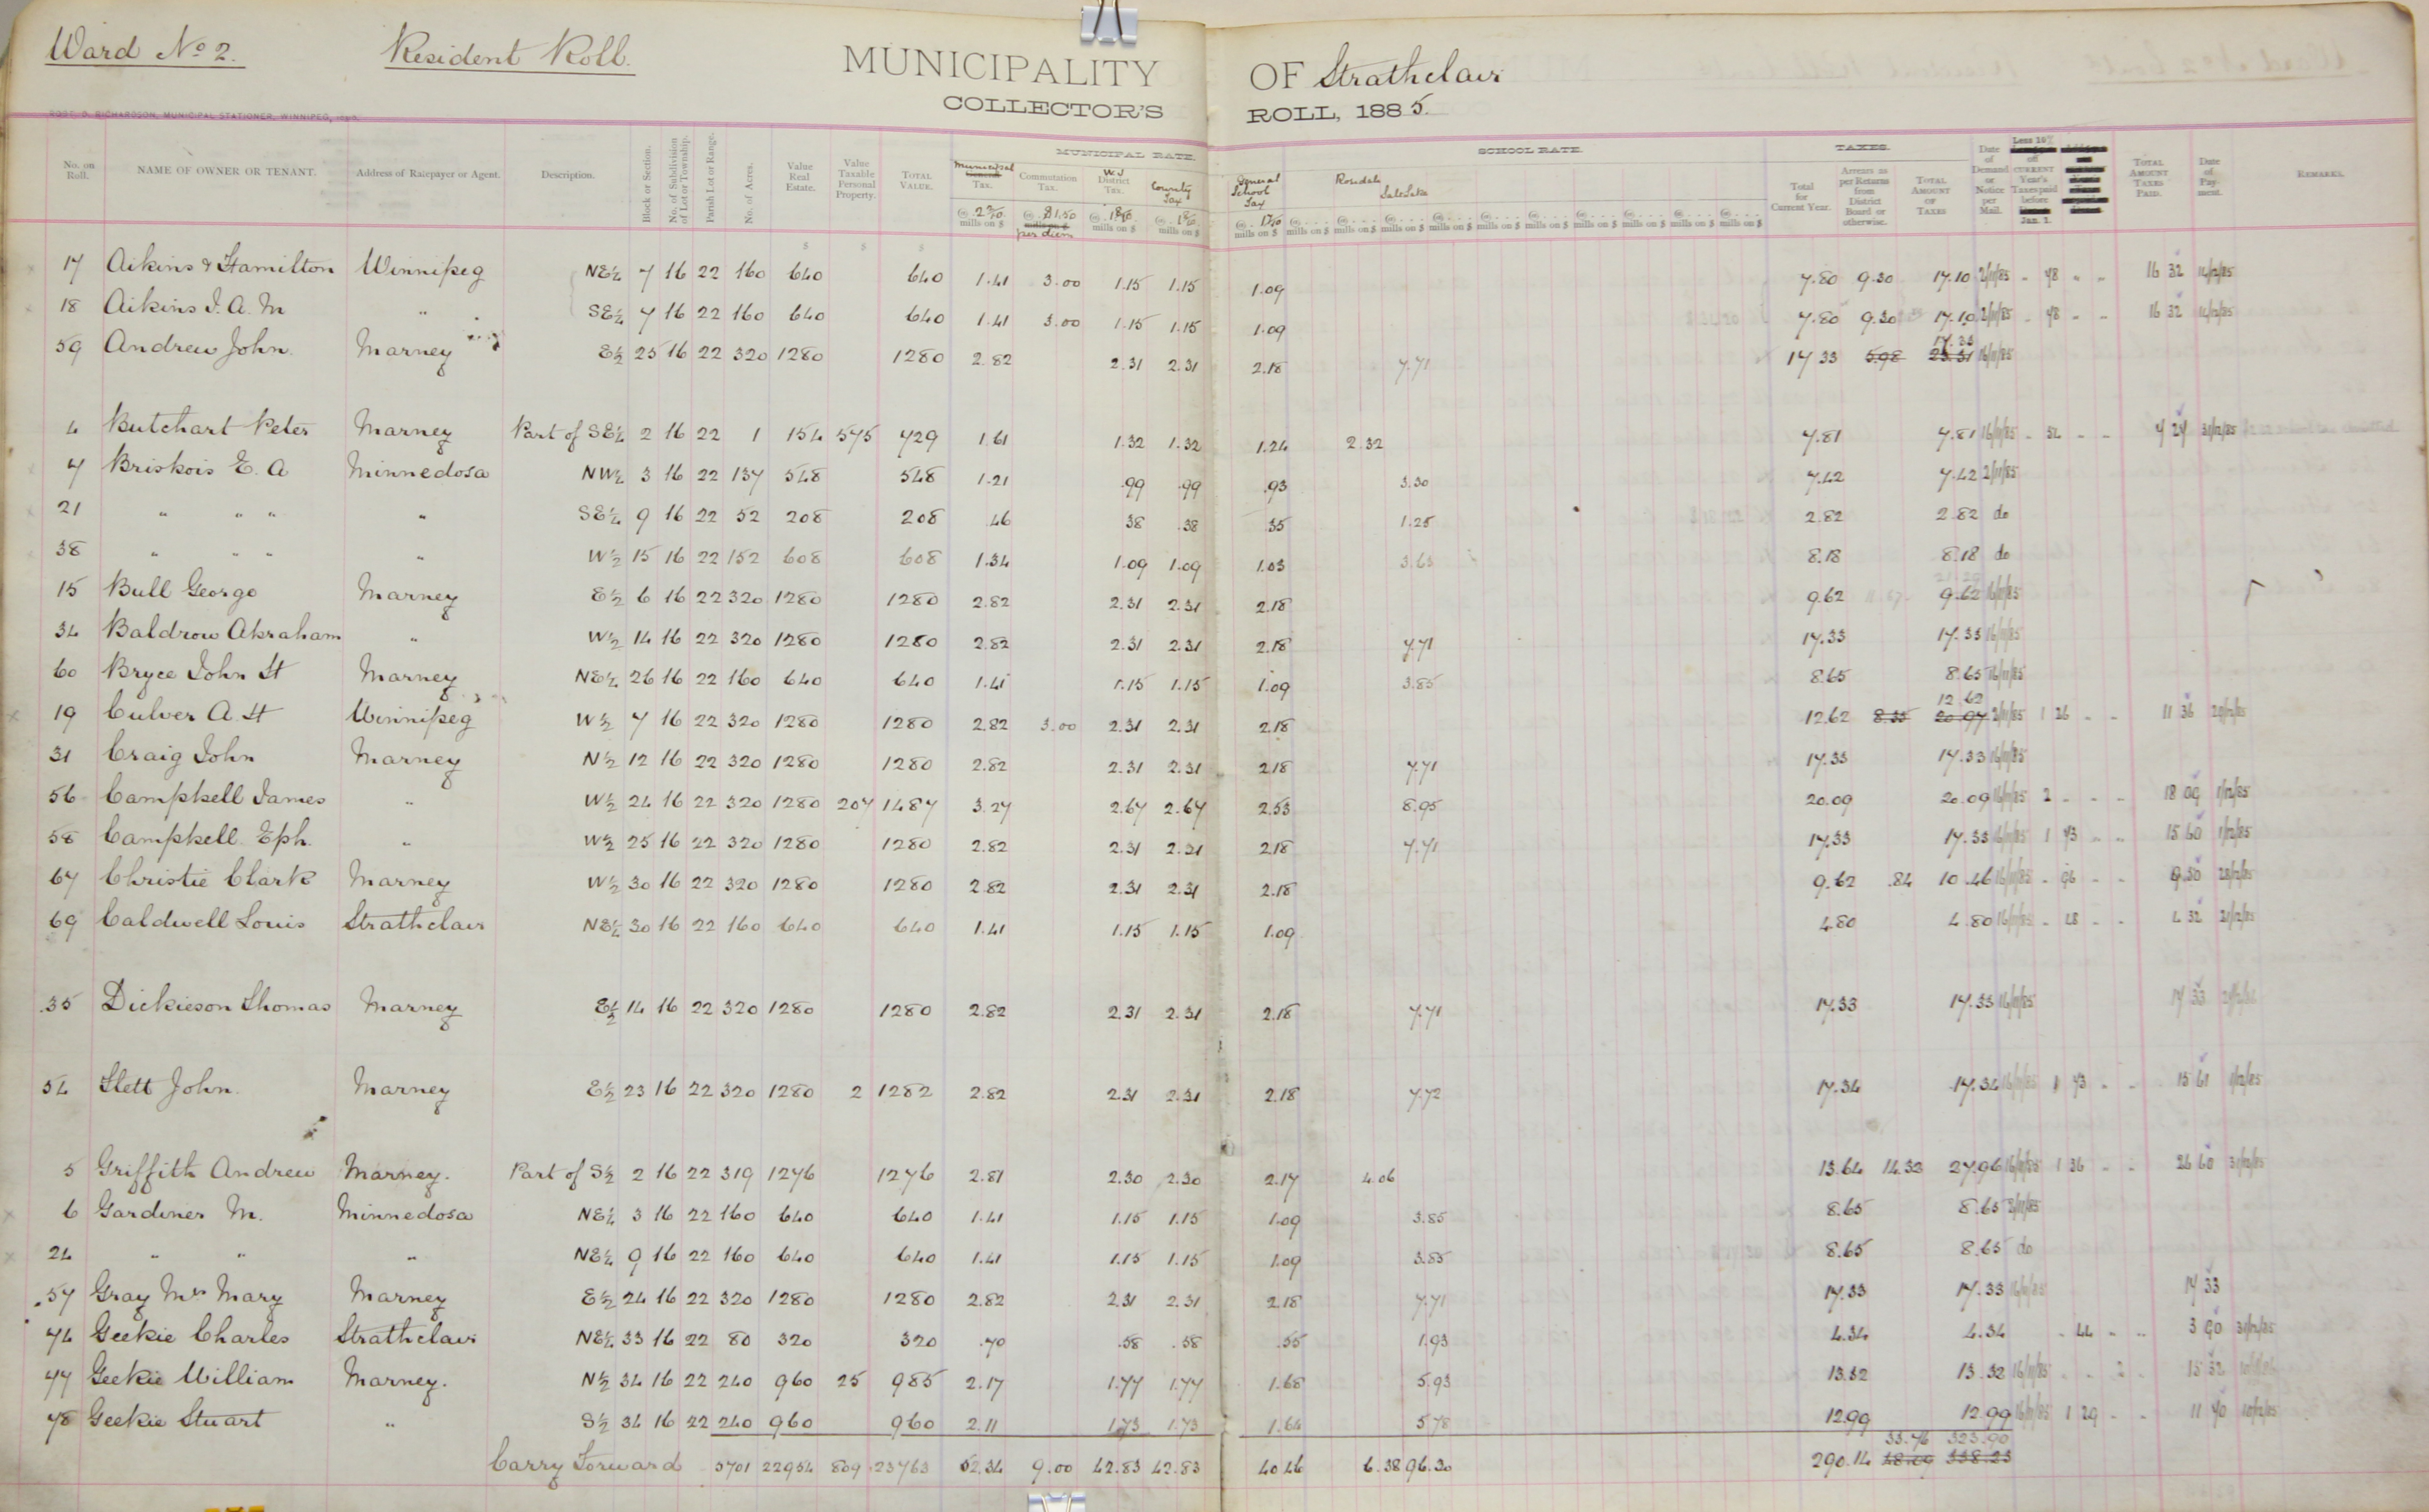 Ward No 2. Resident Roll. MUNICIPALITY OF Strathclair
COLLECTOR'S ROLL, 1885.
ROBT. D. RICHARDSON, MUNICIPAL STATIONER, WINNIPEG,
MUNICIPAL RATE. SCHOOL RATE. TAXES.
No. on Roll. NAME OF OWNER OR TENANT. Address of Ratepayer or Agent. Description. Block or Section. No. of Subdivision of Lot or Township. Parish Lot or Range. No. of Acres. Value Real Estate. Value Taxable Personal Property. TOTAL VALUE. Municipal Tax. Commutation Tax. W.J District Tax. County Tax General School Tax Rosedale SaltLake Total for Current Year. Arrears as per Returns from District Board or otherwise. TOTAL AMOUNT OF TAXES Date of Demand or Notice per Mail. Less 10% off CURRENT Year's Taxes paid before Jan. 1. TOTAL AMOUNT TAXES PAID. Date of Payment. REMARKS.
17 Aikins & Hamilton Winnipeg NE¼ 7 16 22 160 640 640 1.41 3.00 1.15 1.15 1.09 7.80 9.30 17.10 2/11/85 " 78 " " 16 32 14/12/85
18 Aikins J. A. M " SE¼ 7 16 22 160 640 640 1.41 3.00 1.15 1.15 1.09 7.80 9.30 17.10 2/11/85 " 78 " " 16 32 14/12/85
59 Andrew John. Marney E½ 25 16 22 320 1280 1280 2.82 2.31 2.31 2.18 7.71 17 33 5.98 17.33 23.31 16/11/85
4 Butchart Peter Marney Part of SE¼ 2 16 22 1 154 575 729 1.61 1.32 1.32 1.24 2.32 7.81 7.81 16/11/85 31/12/85
7 Briskois E. A Minnedosa NW¼ 3 16 22 137 548 548 1.21 .99 .99 .93 3.30 7.42 7.42 2/11/85
21 " " " " SE¼ 9 16 22 52 208 208 .46 38 .38 .35 1.25 2.82 2.82 do
38 " " " " W½ 15 16 22 152 608 608 1.34 1.09 1.09 1.03 3.63 8.18 8.18 do
15 Bull George Marney E½ 6 16 22 320 1280 1280 2.82 2.31 2.31 2.18 9.62 9.62 16/11/85
34 Baldrow Abraham " W½ 14 16 22 320 1280 1280 2.82 2.31 2.31 2.18 7.71 17.33 17.33 16/11/85
60 Bryce John H Marney NE¼ 26 16 22 160 640 640 1.41 1.15 1.15 1.09 3.85 8.65 8.65 16/11/85
19 Culver A. H Winnipeg W½ 7 16 22 320 1280 1280 2.82 3.00 2.31 2.31 2.18 12.62 8.35 12.62 20.97 2/11/85 1 26 " " 11 36
31 Craig John Marney N½ 12 16 22 320 1280 1280 2.82 2.31 2.31 2.18 7.71 17.33 17.33 16/11/85
56 Campbell James " W½ 24 16 22 320 1280 207 1487 3.27 2.67 2.67 2.53 8.95 20.09 20.09 16/11/85 2 " " " 18 09 1/12/85
58 Campbell Eph. " W½ 25 16 22 320 1280 1280 2.82 2.31 2.31 2.18 7.71 17.33 17.33 16/11/85 1 73 " " 15 60 1/12/85
67 Christie Clark Marney W½ 30 16 22 320 1280 1280 2.82 2.31 2.31 2.18 9.62 .84 10.46 16/11/85 " 96 " " 9.50 28/12/85
69 Caldwell Louis Strathclair NE¼ 30 16 22 160 640 640 1.41 1.15 1.15 1.09 4.80 4.80 16/11/85 " 48 " " 4 32 31/12/85
35 Dickieson Thomas Marney E½ 14 16 22 320 1280 1280 2.82 2.31 2.31 2.18 7.71 17.33 17.33 16/11/85 17 33
54 Flett John. Marney E½ 23 16 22 320 1280 2 1282 2.82 2.31 2.31 2.18 7.72 17.34 17.34 16/11/85 1 73 " " 15 61 1/12/85
5 Griffith Andrew Marney. Part of S½ 2 16 22 319 1276 1276 2.81 2.30 2.30 2.17 4.06 13.64 14.32 27.96 16/11/85 1 36 " " 26 60 31/12/85
6 Gardiner M. Minnedosa NE¼ 3 16 22 160 640 640 1.41 1.15 1.15 1.09 3.85 8.65 8.65 2/11/85
24 " " " NE¼ 9 16 22 160 640 640 1.41 1.15 1.15 1.09 3.85 8.65 8.65 do
57 Gray Mrs Mary Marney E½ 24 16 22 320 1280 1280 2.82 2.31 2.31 2.18 7.71 17.33 17.33 16/11/85 17 33
74 Geekie Charles Strathclair NE¼ 33 16 22 80 320 320 .70 .58 .58 .55 1.93 4.34 4.34 " 44 " " 3 90 31/12/85
77 Geekie William Marney. N½ 34 16 22 240 960 25 985 2.17 1.77 1.77 1.68 5.93 13.32 13.32 16/11/85
78 Geekie Stuart " S½ 34 16 22 240 960 960 2.11 1.73 1.73 1.64 5.78 12.99 12.99 16/11/85 1 29 " " 11 70 10/12/85
Carry Forward 5701 22954 809 23763 52.34 9.00 42.83 42.83 40 46 6.38 96.30 290.14 33.76 48.09 323.90 338.23